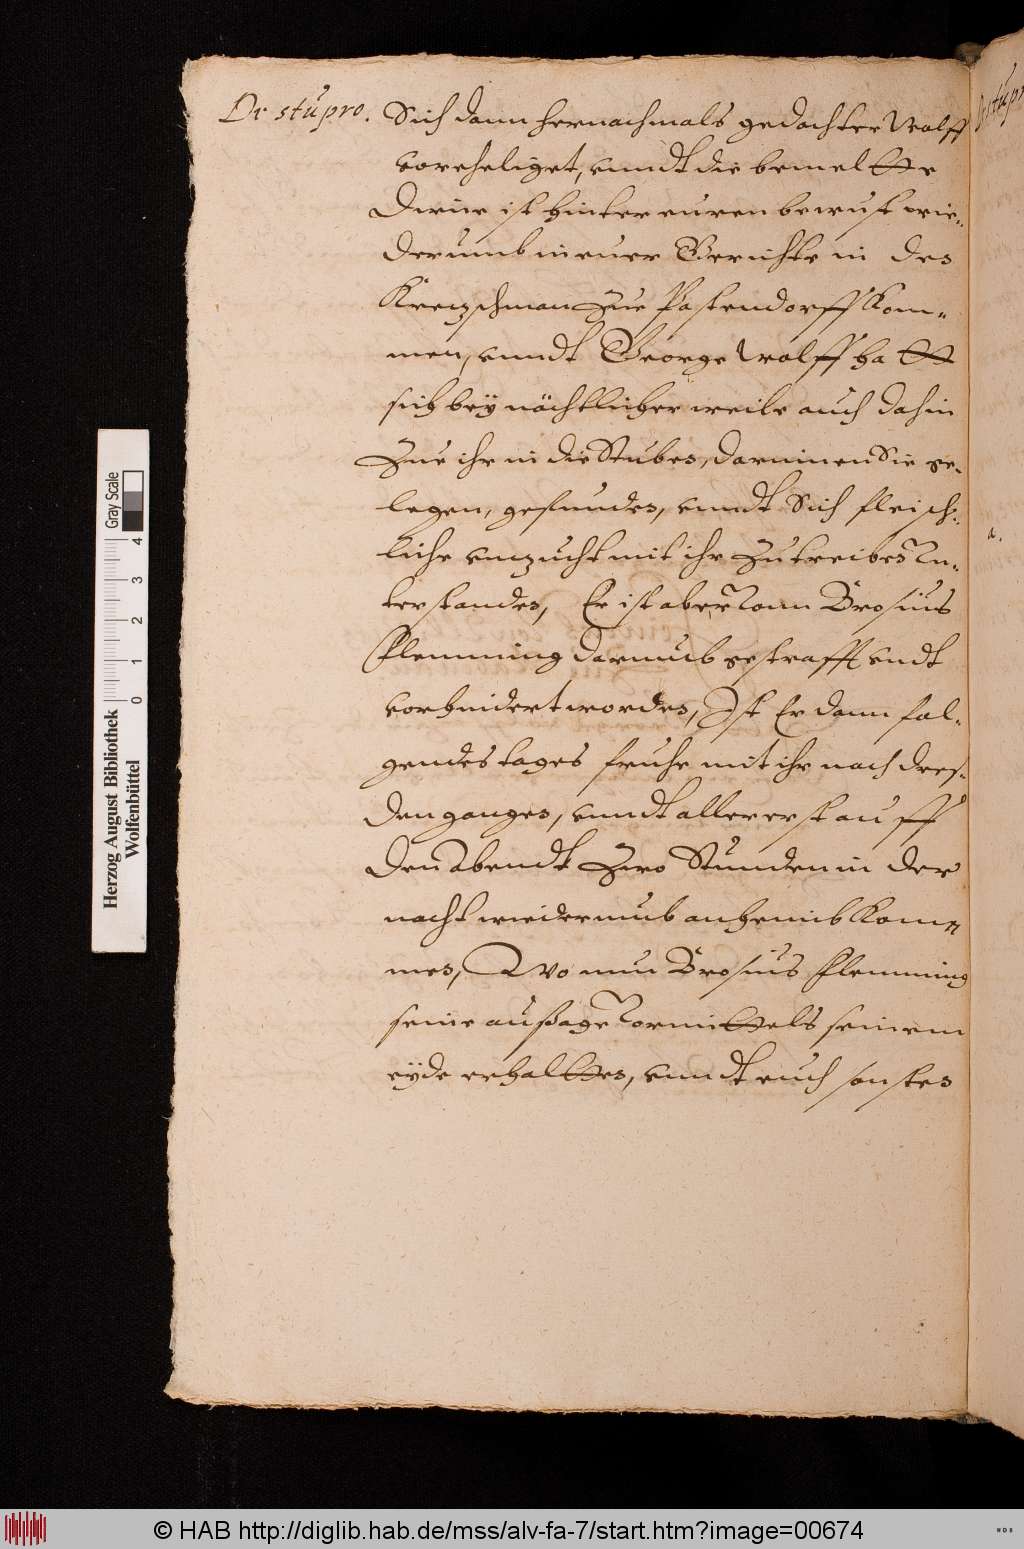 De stupro. Sich dann hernachmals gedachter Wolff
voreheliget, vnndt die bemeltte
Dirne ist hinter euren bewust wie-
derumb in euer Gerichte in des
Kretzschman Zue Pastendorff kom-
men, vnndt George Wolff hatt
sich bey nächtlicher weile auch dahin
Zue ihr in die Stuben, darinnen Sie ge-
legen, gefunden, vnndt Sich fleisch-
liche vnzucht mit ihr Zu treiben vn-
terstanden, Er ist aber von Brosius
Flemming darumb gestrafft vndt
vorhindert worden, Ist Er dann fol-
gendes tages fruhe mit ihr nach Dres-
den gangen, vnndt allererst auff
den Abendt Zwo Stunden in der
nacht wiederumb anheimb kom-
men, Wo nun Brosius Flemming
seine außage vormittels seinem
eyde erhaltten, vnndt euch sonsten
Herzog August Bibliothek
Wolfenbüttel
Gray Scale
0 1 2 3 4
© HAB http://diglib.hab.de/mss/alv-fa-7/start.htm?image=00674